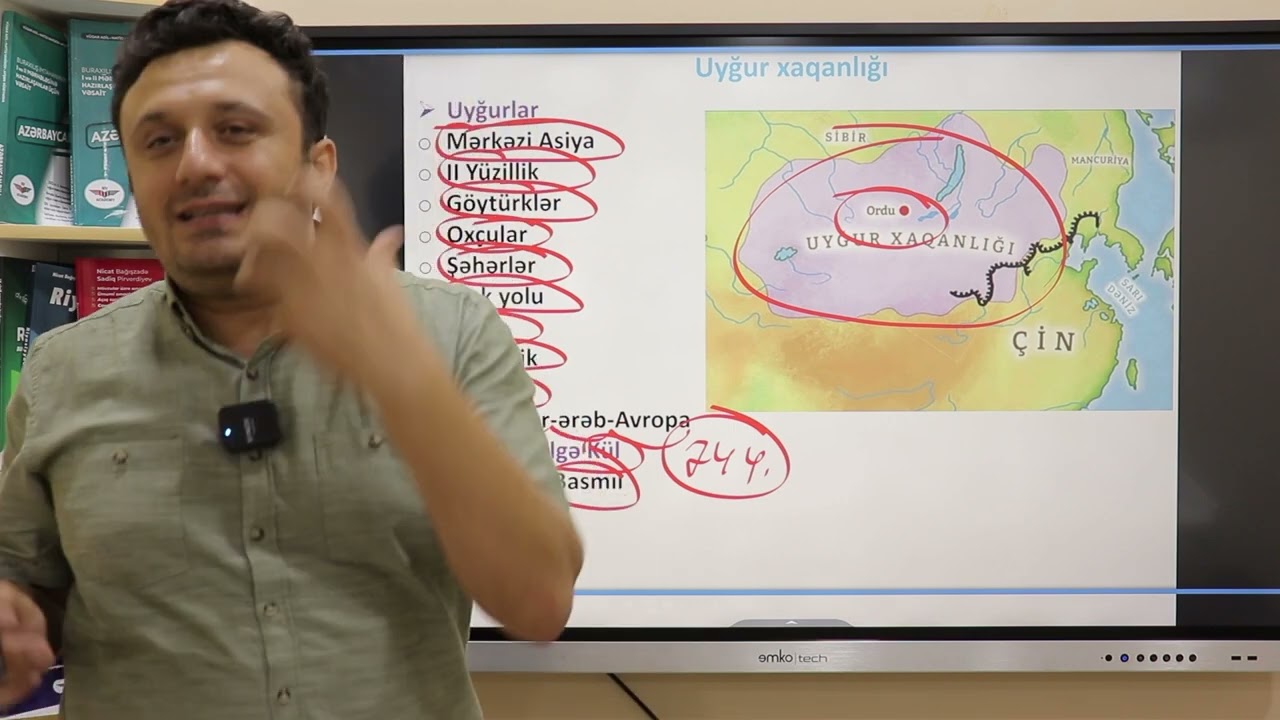 Uyğur xaqanlığı
Uyğurlar
Mərkəzi Asiya
II Yüzillik
Göytürklər
Oxçular
Şəhərlər
yolu
r-ərəb-Avropa
Kül
Basmıl
SİBİR
MANCURİYA
Ordu
UYĞUR XAQANLIĞI
SARI
DƏNİZ
ÇİN
744
emko|tech
AZƏRBAYCA
AZƏ
Nicat Bağışzadə
Sadiq Pirverdiyev
Riy